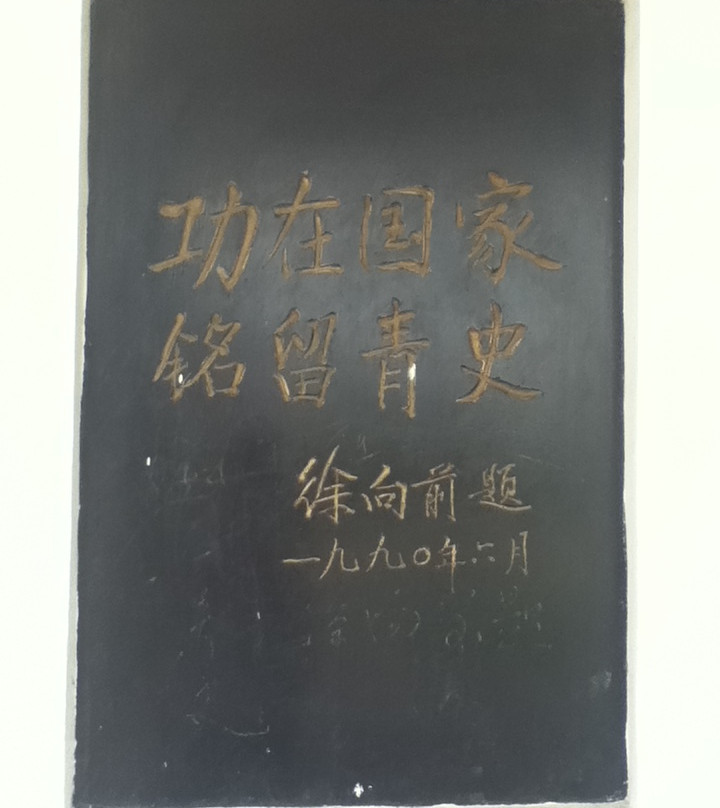 功在国家
铭留青史
徐向前题
一九九〇年六月